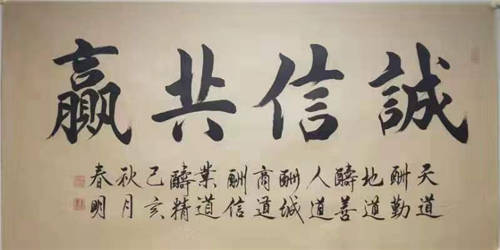 誠信共贏
天道
酬勤
地道
醻善
人道
酬誠
商道
酬信
業道
醻精
己亥
秋月
春明